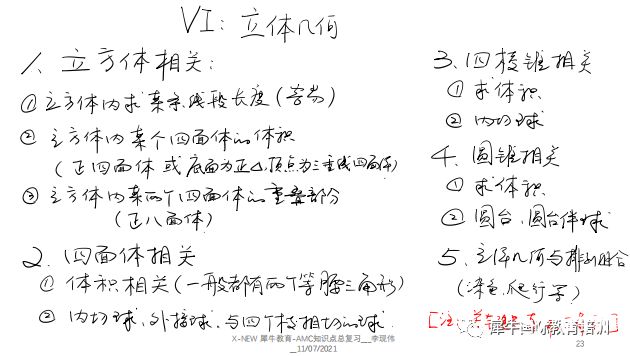 VI: 立体几何
1. 立方体相关:
① 立方体内求某条线段长度(容易)
② 立方体内某个四面体的体积
(正四面体 或 底面为正△,顶点为三垂线四面体)
③ 立方体内某两个四面体的重叠部分
(正八面体)
2. 四面体相关
① 体积相关(一般都有两个等腰三角形)
② 内切球,外接球,与四个棱相切的球.
3. 四棱锥相关
① 求体积
② 内切球
4. 圆锥相关
① 求体积
② 圆台、圆台伴球
5. 立体几何与排列组合
(染色,爬行等)
[注:
犀牛国际教育培训
X-NEW 犀牛教育-AMC知识点总复习__李现伟
_11/07/2021
23